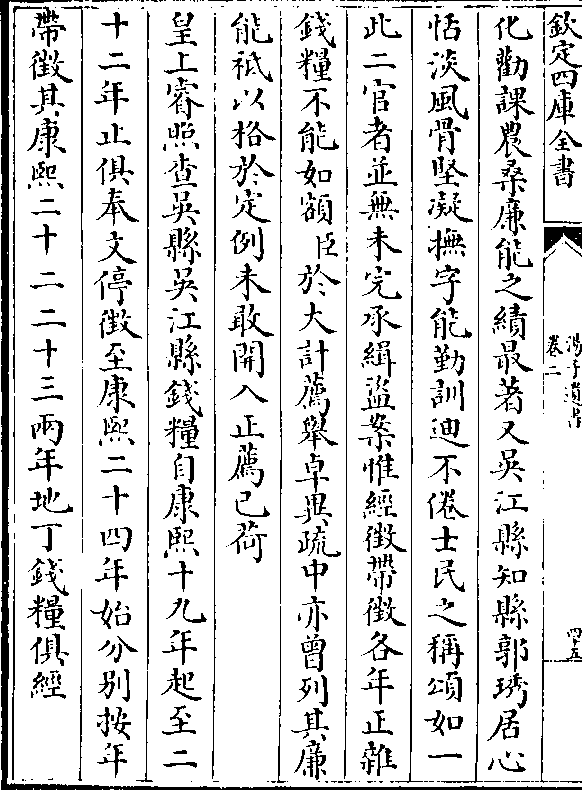 欽定四庫全書
湯子遺書
卷二
四五
化勸課農桑廉能之績最著又吳江縣知縣郭琇居心
恬淡風骨堅凝撫字能勤訓迪不倦士民之稱頌如一
此二官者並無未完承緝盜案惟經徵帶徵各年正雜
錢糧不能如額臣於大計薦舉卓異疏中亦曾列其廉
能祗以格於定例未敢開入正薦已荷
皇上睿照查吳縣吳江縣錢糧自康熙十九年起至二
十二年止俱奉文停徵至康熙二十四年始分别按年
帶徵其康熙二十二二十三兩年地丁錢糧俱經